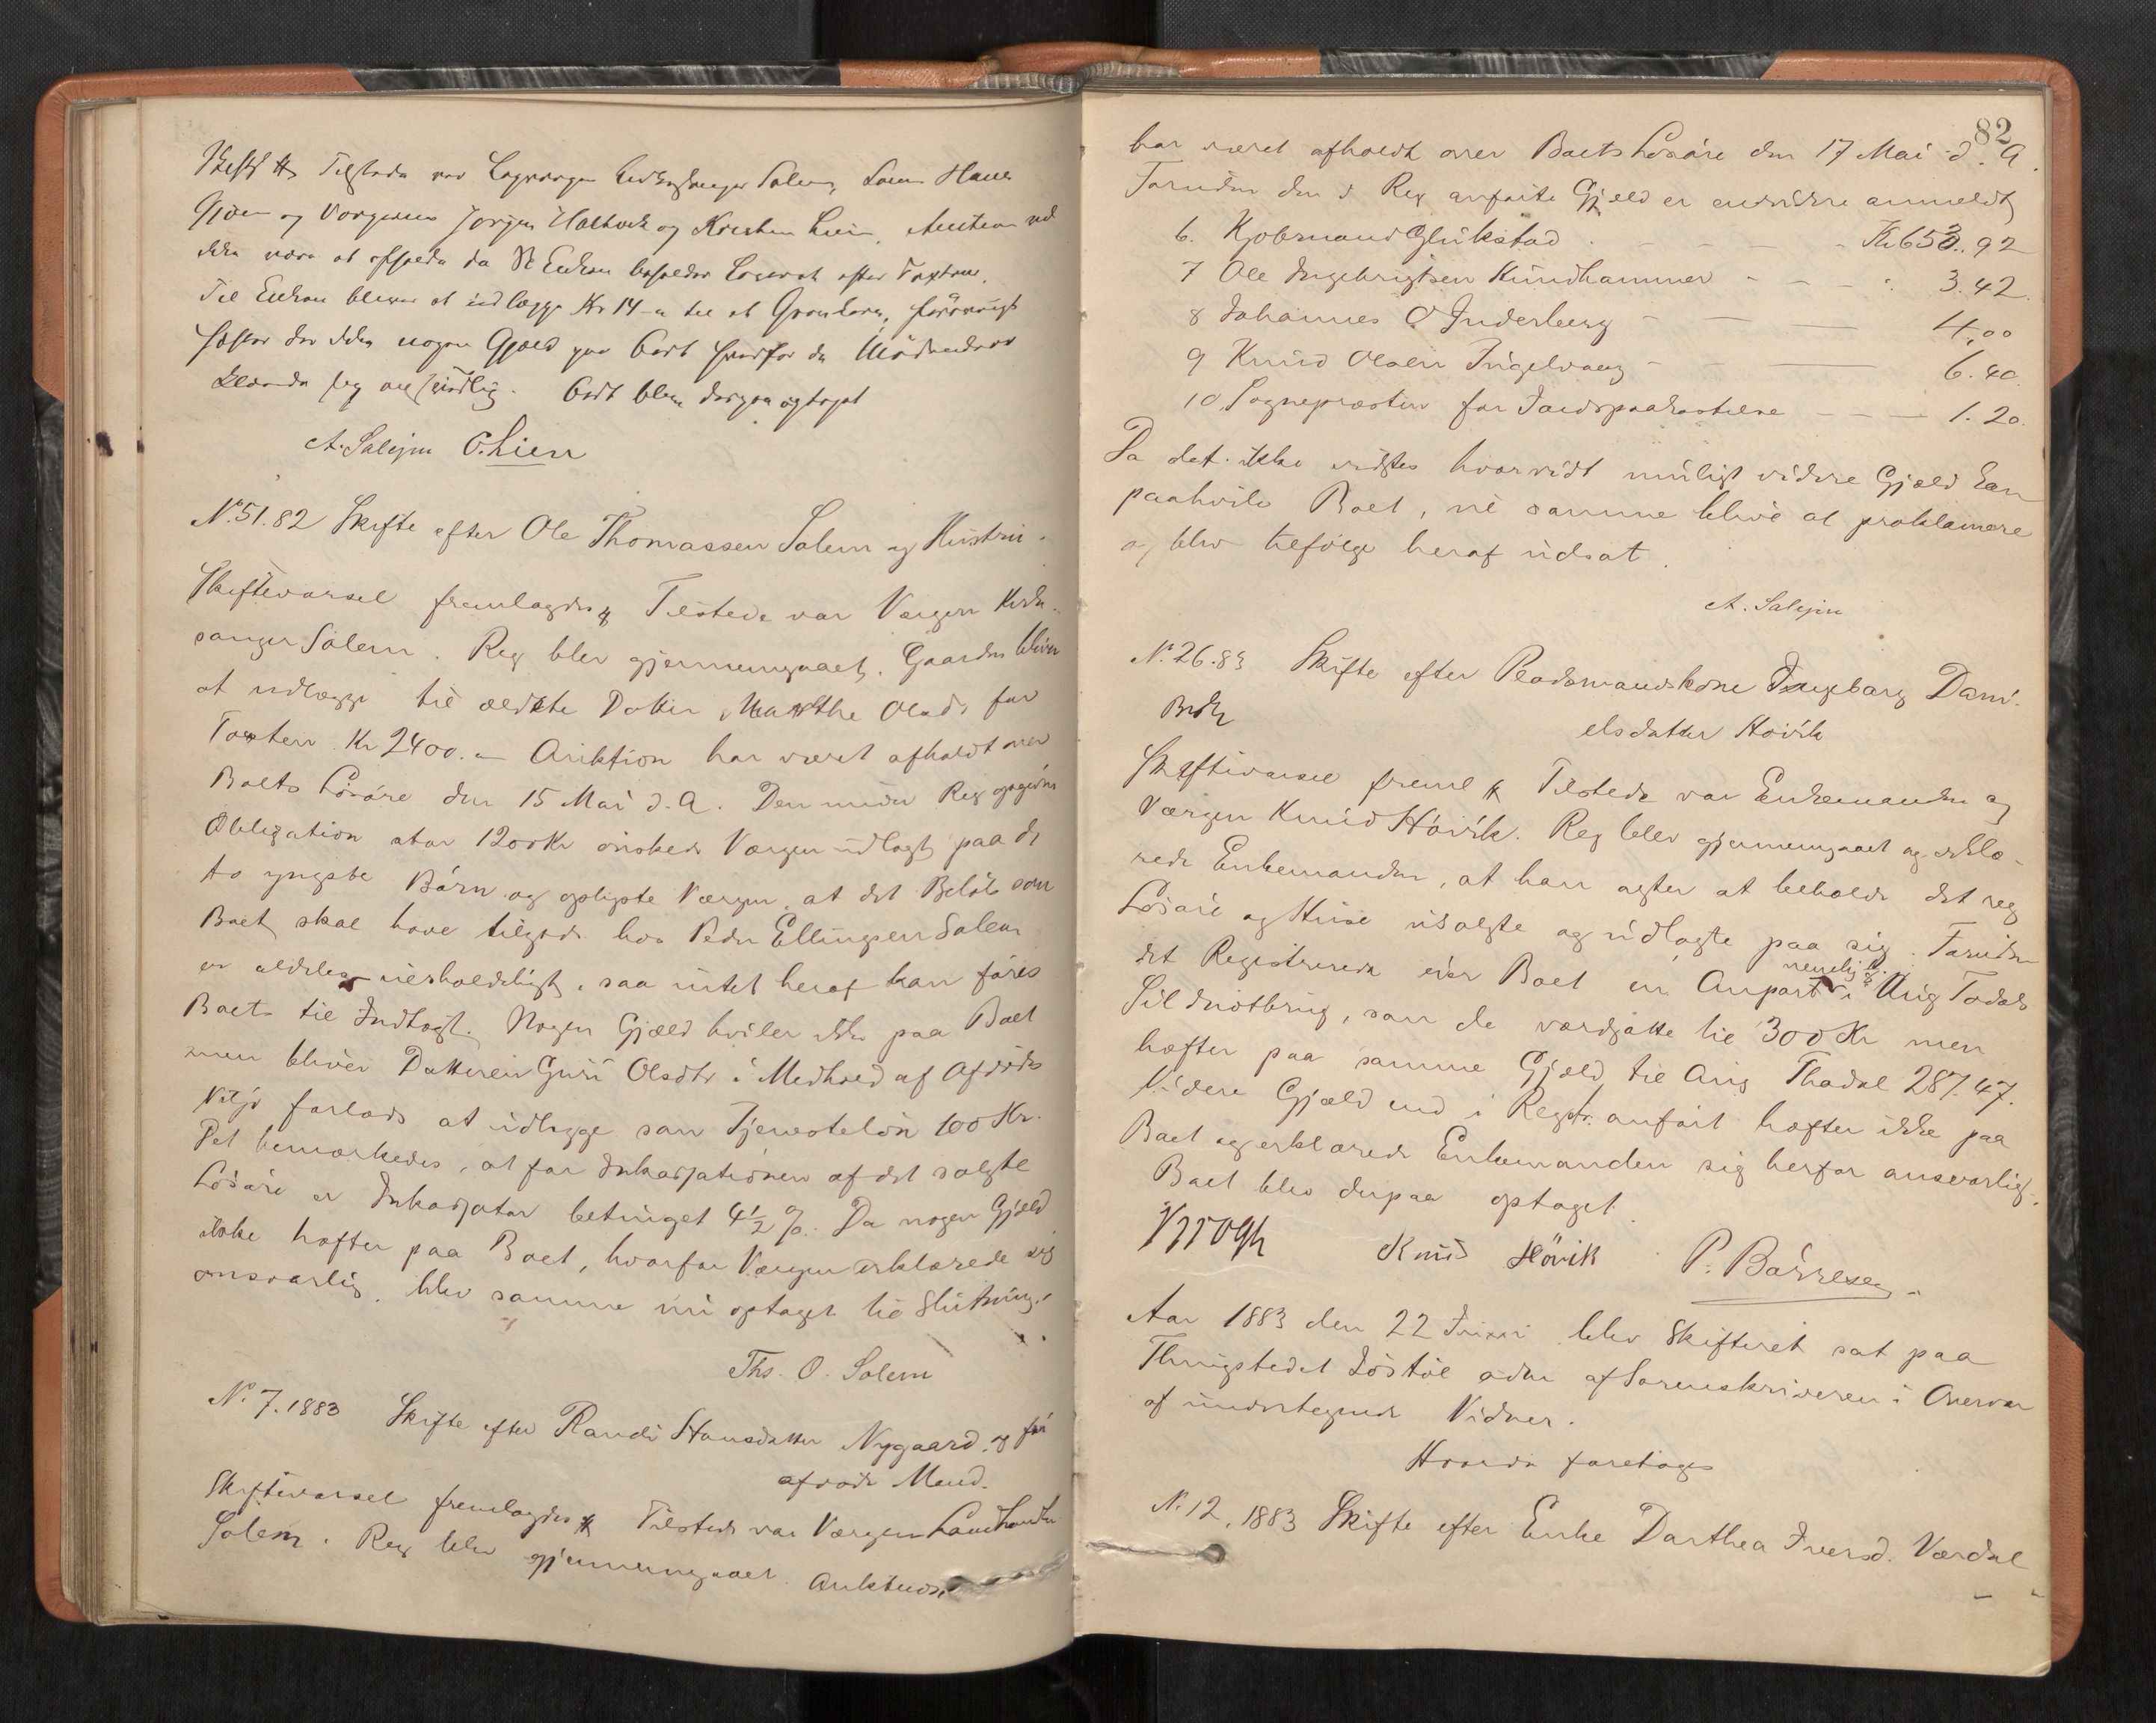 Tilstede var Lagværge Kirkesanger Solem, Lars Hans
Gjøen og Værgerne Jørgen Halbock og Kristen Lien, Auktion vil
ikke være at afholde da Enken beholder Løsøret efter Taxten.
Til Enken bliver at udlægge Kr 14 - til
hæfter der ikke nogen Gjæld paa Boet hvorfor de Mødende er
klærede sig ansvarlig. Boet blev derpaa optaget
A. Saleyin O. Lien
No. 51.82 Skifte efter Ole Thomassen Solem og Hustru.
Skiftevarsel fremlagdes Tilstede var Værgen Kirke-
sanger Solem. Reg blev gjennemgaaet. Gaarden bliver
at udlægge til ældste Datter Marthe Olsdr for
Taxten Kr 2400. - Auktion har været afholdt over
Boets Løsøre den 15 Mai d. A. Den under Reg opgivne
Obligation stor 1200 Kr ønskede Værgen udlagt paa de
to yngste Børn og oplyste Værgen, at det Beløb som
Boet skal have tilgode hos Peder Ellingsen Solem
er aldeles uerholdeligt, saa intet heraf kan føres
Boet til Indtægt. Nogen Gjæld hviler ikke paa Boet
men bliver Datteren Guri Olsdtr i Medhold af Afdødes
Vilje forlods at udlægge som Tjenesteløn 100 Kr.
Det bemærkedes, at for Inkassationen af det solgte
Løsøre er Inkassator betinget 4½ %. Da nogen Gjæld
ikke hæfter paa Boet, hvorfor Værgen erklærede sig
ansvarlig, blev samme nu optaget til Slutning.
Ths. O. Solem
No. 7. 1883 Skifte efter Randi Hansdatter Nygaard, og før
afdøde Mand.
Skiftevarsel fremlagdes Tilstede var Værgen Landhandler
Solem. Reg blev gjennemgaaet. Auktion
82
har været afholdt over Boets Løsøre den 17 Mai d. A.
Foruden den i Reg anførte Gjæld er endvidere anmeldt
6. Kjøbmand Glükstad - - - - Kr 653.92
7 Ole Ingebrigtsen Kundhammer - - - - 3.42.
8 Johannes O Inderberg - - - 4,00
9 Knud Olsen Ingelvang - - - 6.40.
10, Sognepræsten for Jordspaakastelse - - - 1.20.
Da det ikke vidstes hvorvidt muligt videre Gjæld kan
paahvile Boet, vil samme blive at proklamere
og blev tilfølge heraf udsat.
A. Saleyin
No. 26.83 Skifte efter Pladsmandskone Ingeborg Dani-
elsdatter Høvik
Skiftevarsel freml Tilstede var Enkemanden og
Værgen Knud Høvik. Reg blev gjennemgaaet og erklæ-
rede Enkemanden, at han agter at beholde det reg
Løsøre og Huse usolgte og udlagte paa sig. Foruden
det Registrerede eier Boet en Anpart nemlig i Aug Todals
Sildnotbrug, som de værdsatte til 300 Kr men
hæfter paa samme Gjæld til Aug Thodal 287.47.
Videre Gjæld end i Regstr. anført hæfter ikke paa
Boet og erklærede Enkemanden sig herfor ansvarlig.
Boet blev derpaa optaget.
Krogh Knud Høvik P. Børresen
Aar 1883 den 22 Juni blev Skifteret sat paa
Thingstedet Løstøl af Sorenskriveren i Overvær
af undertegnede Vidner.
Hvorda foretoges
No. 12, 1883 Skifte efter Enke Darthea Iversd. Værdal